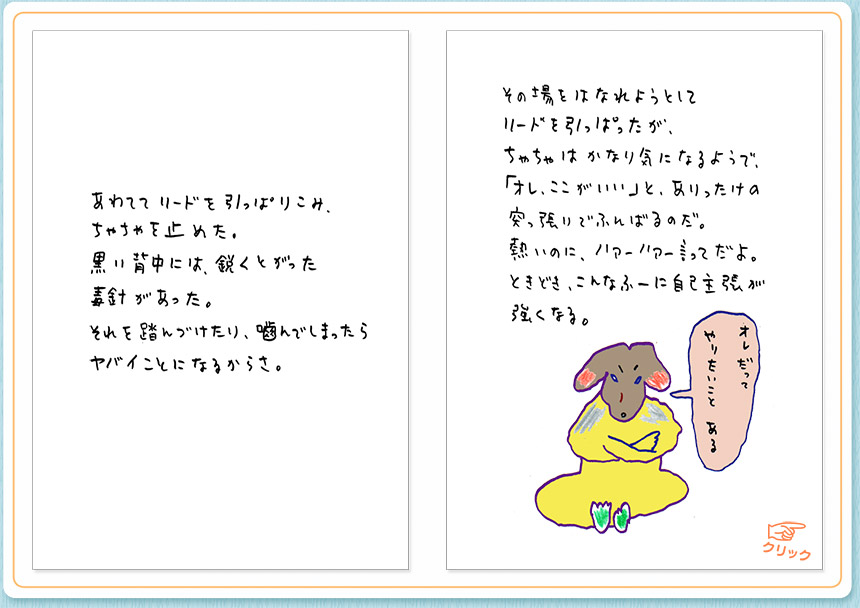 あわてて リードを 引っぱりこみ、
ちゃちゃを止めた。
黒い背中には、鋭くとがった
毒針があった。
それを踏んづけたり、噛んでしまったら
ヤバイことになるからさ。
その場をはなれようとして
リードを引っぱったが、
ちゃちゃは かなり気になるようで、
「オレ、ここがいい」と、ありったけの
突っ張りでふんばるのだ。
熱いのに、ハァーハァー言ってだよ。
ときどき、こんなふーに自己主張が
強くなる。
オレ だって
やりたいこと ある
クリック